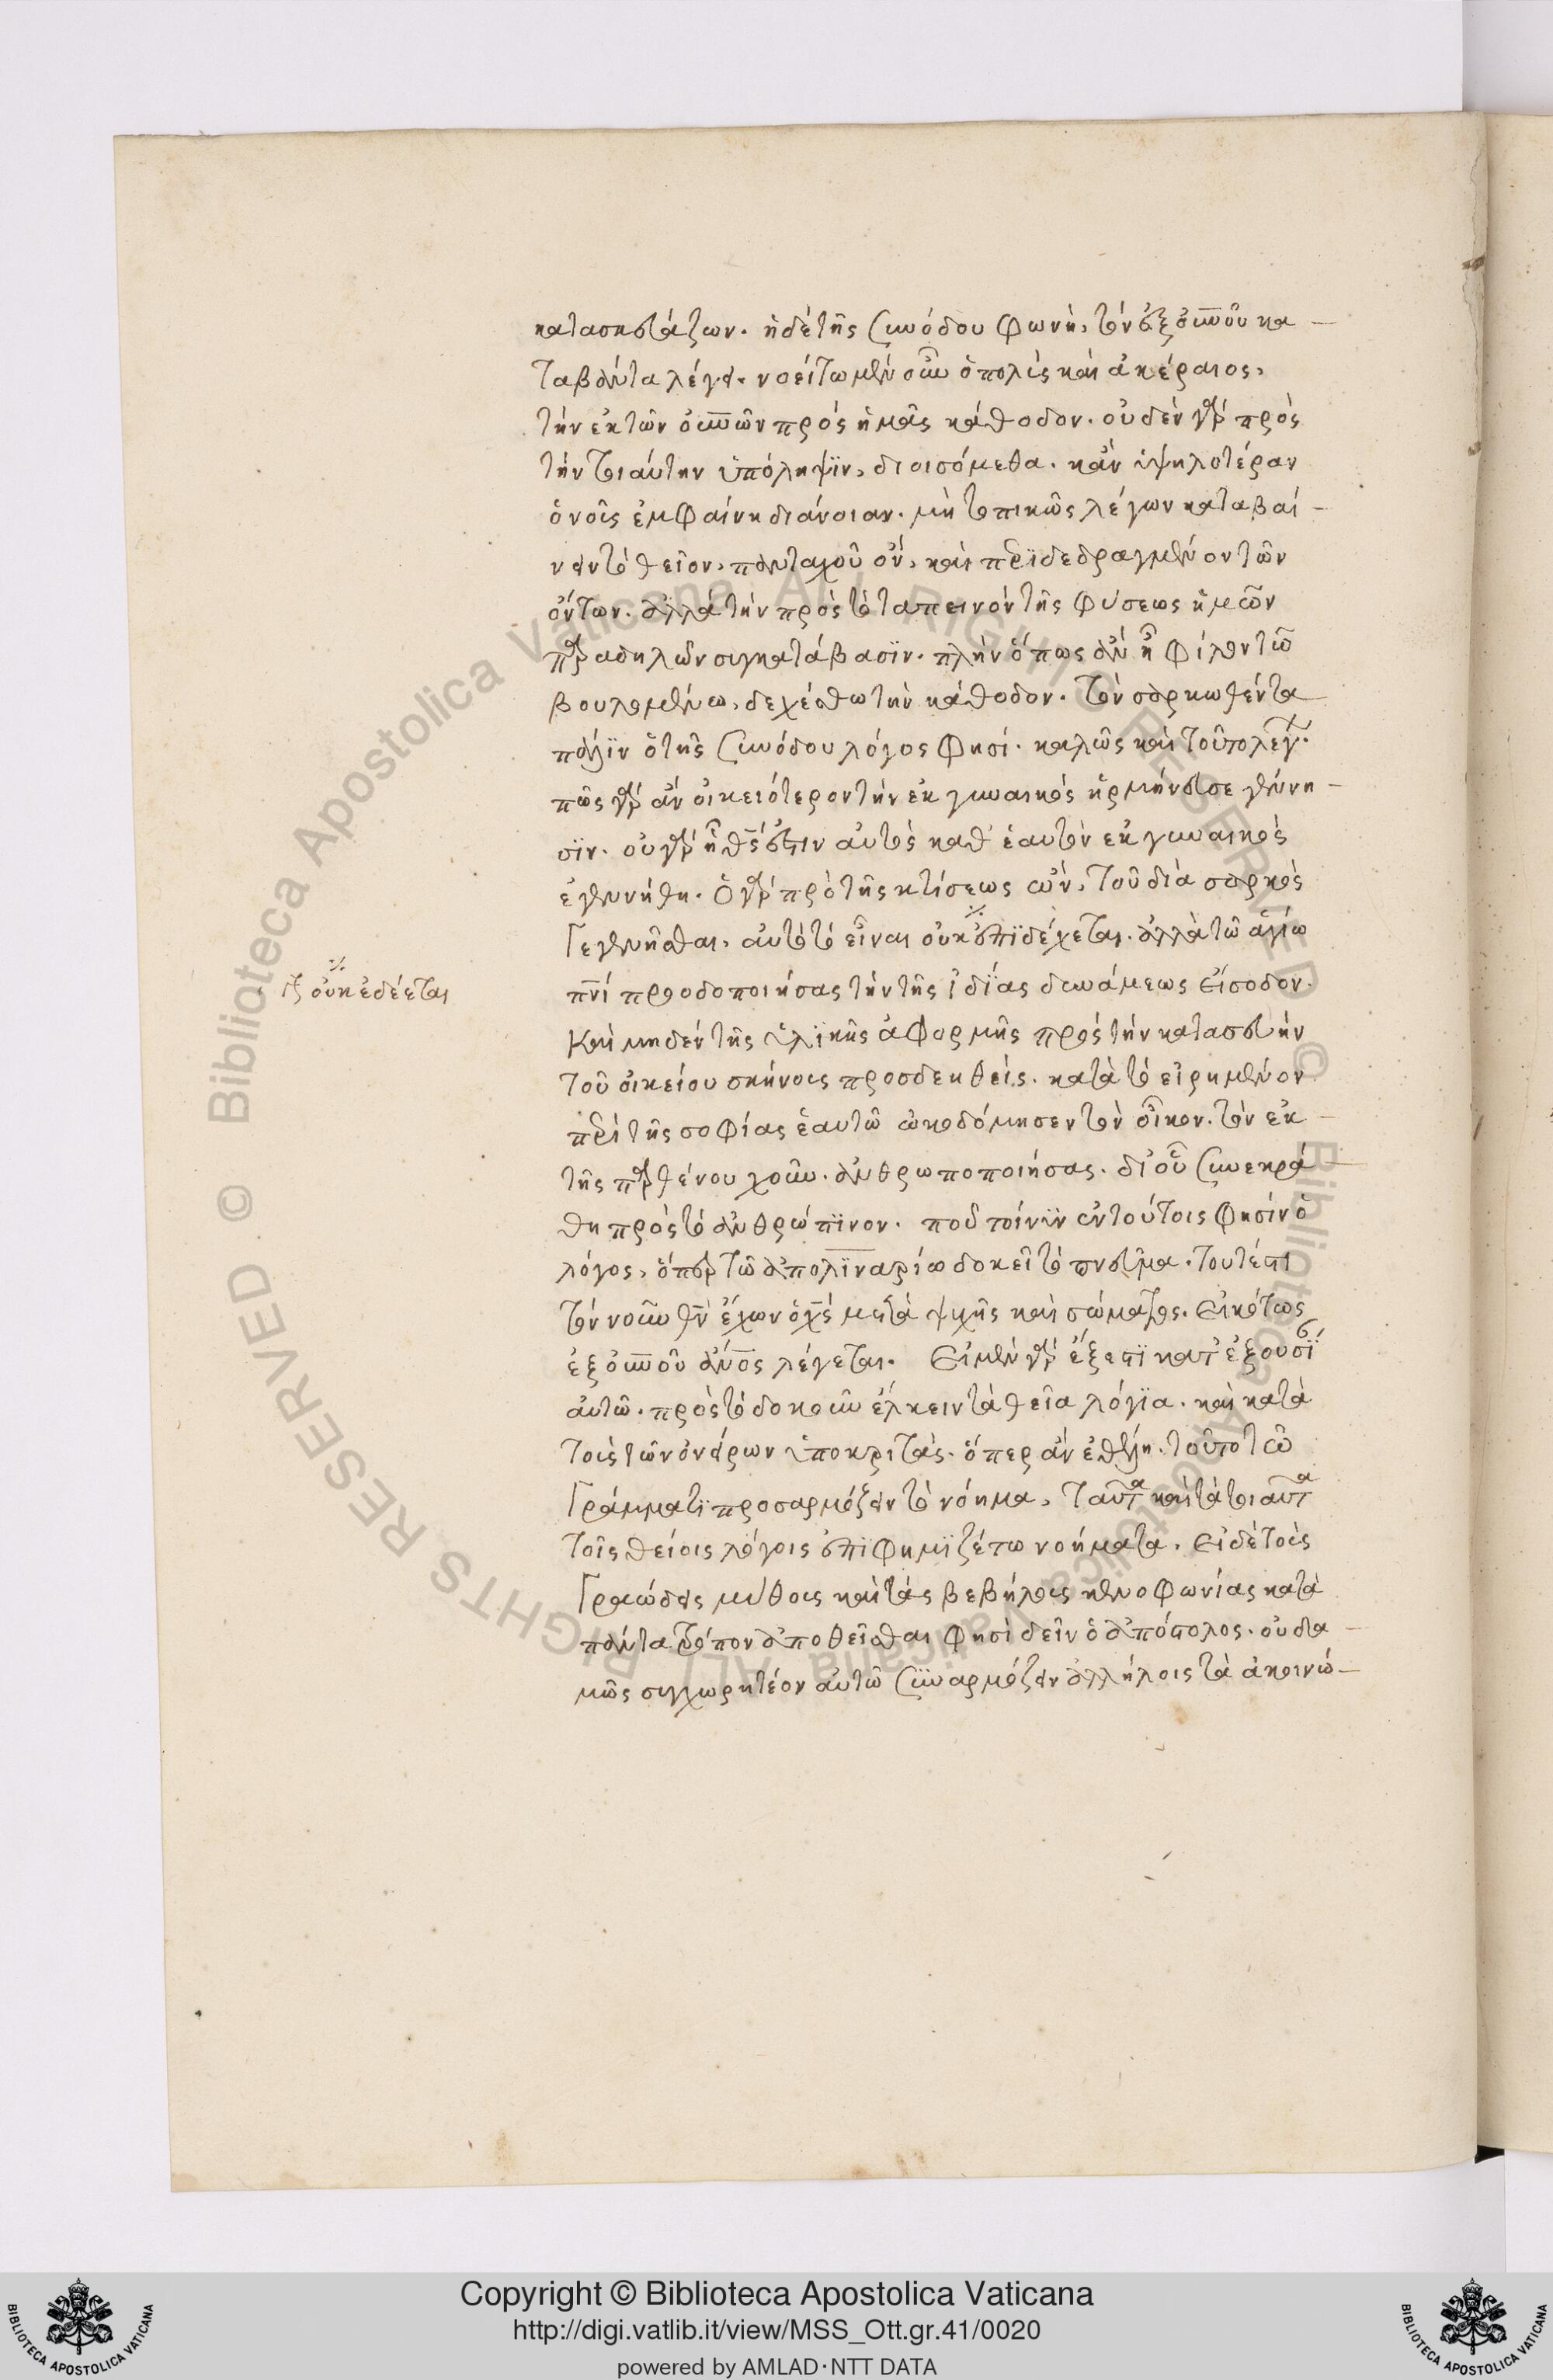 κατασκευάζων. ἡ δὲ τῆς συνόδου φωνὴ, τὸν ἐξ οὐνοῦ κα
ταβάντα λέγει. νοείτω μὲν οὖν ὁ πολὺς καὶ ἀκέραιος,
τὴν ἐκ τῶν οὐνῶν πρὸς ἡμᾶς κάθοδον. οὐδὲν γὰρ πρὸς
τὴν τοιαύτην ὑπόληψϊν, διοισόμεθα. κἂν ὑψηλοτέραν
ὁ νοῦς ἐμφαίνη διάνοιαν. μὴ τοπικῶς λέγων καταβαί
νειν τὸ θεῖον, πανταχοῦ ὂν, καὶ περϊδεδραγμένον τῶν
ὄντων. ἀλλὰ τὴν πρὸς τὸ ταπεινὸν τῆς φύσεως ἡμῶν
παραδηλῶν συγκατάβασϊν. πλὴν ὅπως ἂν ἦ φίλον τῶ
βουλομένω, δεχέσθω τὴν κάθοδον. τὸν σαρκωθέντα
πάλϊν ὁ τῆς συνόδου λόγος φησί. καλῶς καὶ τοῦτο λέγ.
πῶς γὰρ ἂν οἰκειότερον τὴν ἐκ γυναικὸς ἡρμήνευσε γένη
σϊν. οὐ γὰρ ἧ θς ἐστιν αὐτὸς καθ' ἑαυτὸν ἐκ γυναικὸς
ἐγεννήθη. Ὁ γὰρ πρὸ τῆς κτίσεως ὢν, τοῦ διὰ σαρκὸς
Γεγενῆσθαι, αὐτὸ τὸ εἶναι οὐκ ἐπϊδέχεται. ἀλλὰ τῶ ἁγίω
πνί προοδοποιήσας τὴν τῆς ἰδίας δυνάμεως εἴσοδον.
οὐκ ἐδέεται
Καὶ μηδὲν τῆς ὑλϊκῆς ἀφορμῆς πρὸς τὴν κατασευὴν
τοῦ οἰκείου σκήνους προσδεηθείς. κατὰ τὸ εἰρημένον
περὶ τῆς σοφίας ἑαυτῶ ὠκοδόμησεν τὸν οἶκον. τὸν ἐκ
τῆς παρθένου χοῦν. ἀνθρωποποιήσας. δι' οὗ συνεκρά
θη πρὸς τὸ ἀνθρώπϊνον. ποῦ τοίνϋν ἐν τούτοις φησὶν ὁ
λόγος, ὅπερ τῶ ἀπολϊναρίω δοκεῖ τὸ πνεῦμα. τουτέστι
τὸν νοῦν θν ἔχων ὁ χς μετὰ ψυχῆς καὶ σώματος. εἰκότως
ἐξ οὐνοῦ ἄνος λέγεται. Εἰ μὲν γὰρ ἔξεστϊ κατ' ἐξουσί
αὐτῶ. πρὸς τὸ δοκοῦν ἕλκειν τὰ θεῖα λόγϊα. καὶ κατὰ
τοὺς τῶν ὀνείρων ὑποκριτὰς. ὅπερ ἂν ἐθέλη. τοῦτο τῶ
Γράμματϊ προσαρμόζειν τὸ νόημα, ταῦτα καὶ τὰ τοιαῦτα
τοῖς θείοις λόγοις ἐπϊφημϊζέτω νοήματα. εἰ δὲ τοὺς
Γραώδεις μύθους καὶ τὰς βεβήλους κενοφωνίας κατὰ
πάντα τρόπον ἀποθεῖσθαι φησὶ δεῖν ὁ ἀπόστολος. οὐδα
μῶς συγχωρητέον αὐτῶ συναρμόζειν ἀλλήλοις τὰ ἀκοινώ
Copyright © Biblioteca Apostolica Vaticana
http://digi.vatlib.it/view/MSS_Ott.gr.41/0020
powered by AMLAD·NTT DATA